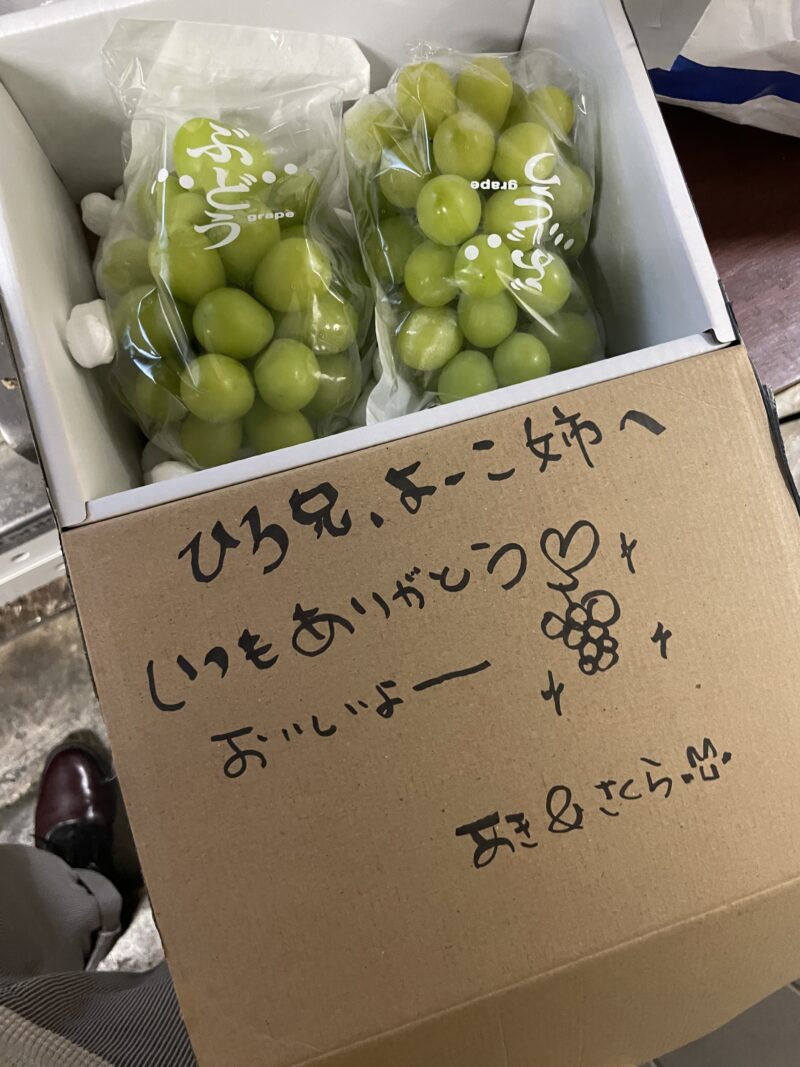 ぶどう
grape
ぶどう
grape
ひろ兄、よーこ姉へ
いつもありがとう♡
おいしいよー
あき&さくら